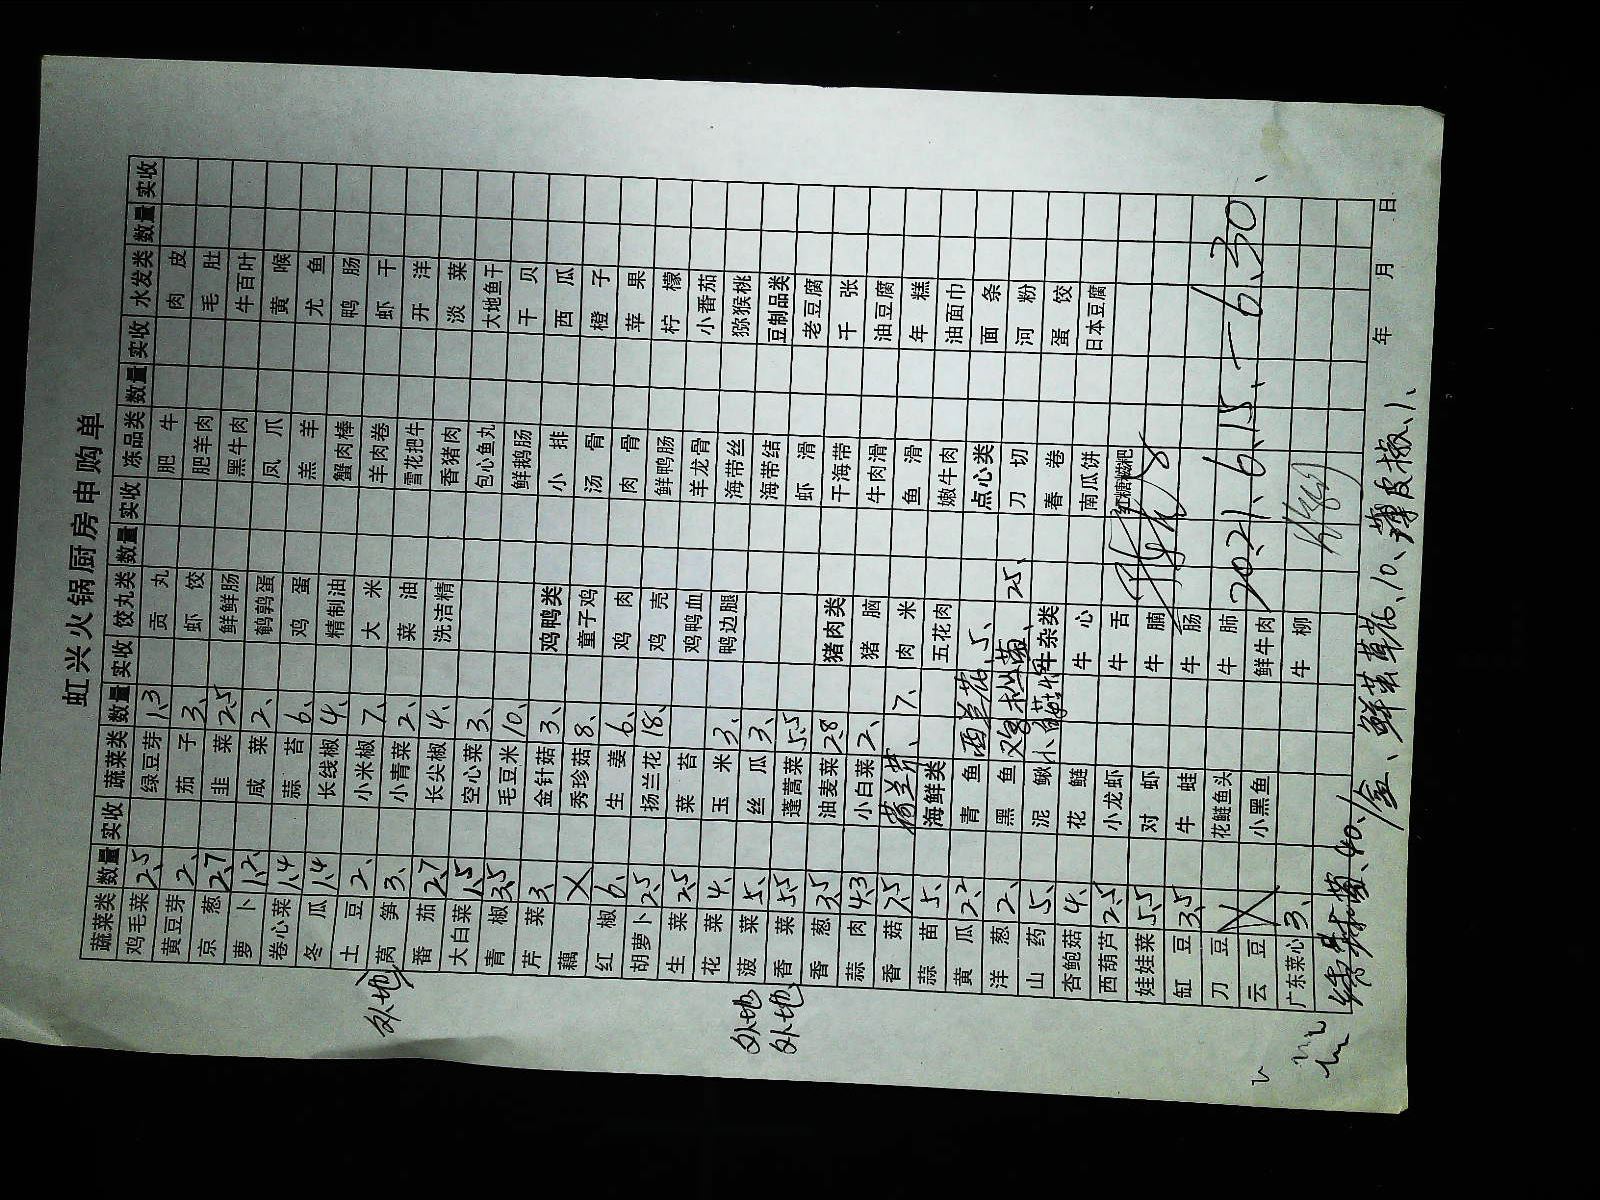 虹兴火锅厨房申购单
蔬菜类 数量 实收 蔬菜类 数量 实收 饺丸类 数量 实收 冻品类 数量 实收 水发类 数量 实收
鸡毛菜 2.5 绿豆芽 1.3 贡丸 肥牛 肉皮
黄豆芽 2、 茄子 3、 虾饺 肥羊肉 毛肚
京葱 2.7 韭菜 2.5 鲜鲜肠 黑牛肉 牛百叶
萝卜 1.2、 咸菜 2、 鹌鹑蛋 凤爪 黄喉
卷心菜 1.4 蒜苔 6、 鸡蛋 羔羊 尤鱼
冬瓜 1.4 长线椒 4、 精制油 蟹肉棒 鸭肠
土豆 2、 小米椒 7、 大米 羊肉卷 虾干
外地 莴笋 3、 小青菜 2、 菜油 雪花把牛 开洋
番茄 2.7 长尖椒 4、 洗洁精 香猪肉 淡菜
大白菜 1.5 空心菜 3、 包心鱼丸 大地鱼干
青椒 3.5 毛豆米 10、 鲜鹅肠 干贝
芹菜 3、 金针菇 3、 鸡鸭类 小排 西瓜
藕 X 秀珍菇 8、 童子鸡 汤骨 橙子
红椒 6、 生姜 6、 鸡肉 肉骨 苹果
胡萝卜 2.5 扬兰花 18、 鸡壳 鲜鸭肠 柠檬
生菜 2.5 菜苔 鸡鸭血 羊龙骨 小番茄
花菜 4、 玉米 3、 鸭边腿 海带丝 猕猴桃
外地 菠菜 5、 丝瓜 3、 海带结 豆制品类
外地 香菜 5.5 蓬蒿菜 5.5 虾滑 老豆腐
香葱 3.5 油麦菜 2.8 猪肉类 干海带 千张
蒜肉 4.3 小白菜 2、 猪脑 牛肉滑 油豆腐
香菇 7.5 7、 肉米 鱼滑 年糕
蒜苗 5、 海鲜类 五花肉 嫩牛肉 油面巾
黄瓜 2.2 青鱼 5、 点心类 面条
洋葱 2、 黑鱼 25、 刀切 河粉
山药 5、 泥鳅 牛杂类 春卷 蛋饺
杏鲍菇 4、 花鲢 牛心 南瓜饼 日本豆腐
西葫芦 2.5 小龙虾 牛舌 红糖糍粑
娃娃菜 5.5 对虾 牛腩
缸豆 3.5 牛蛙 牛肠
刀豆 花鲢鱼头 牛肺 2021、6.15、—6、30、
云豆 小黑鱼 鲜牛肉
广东菜心 3、 牛柳
40、 鲜 10、薄皮椒、1、
年 月 日